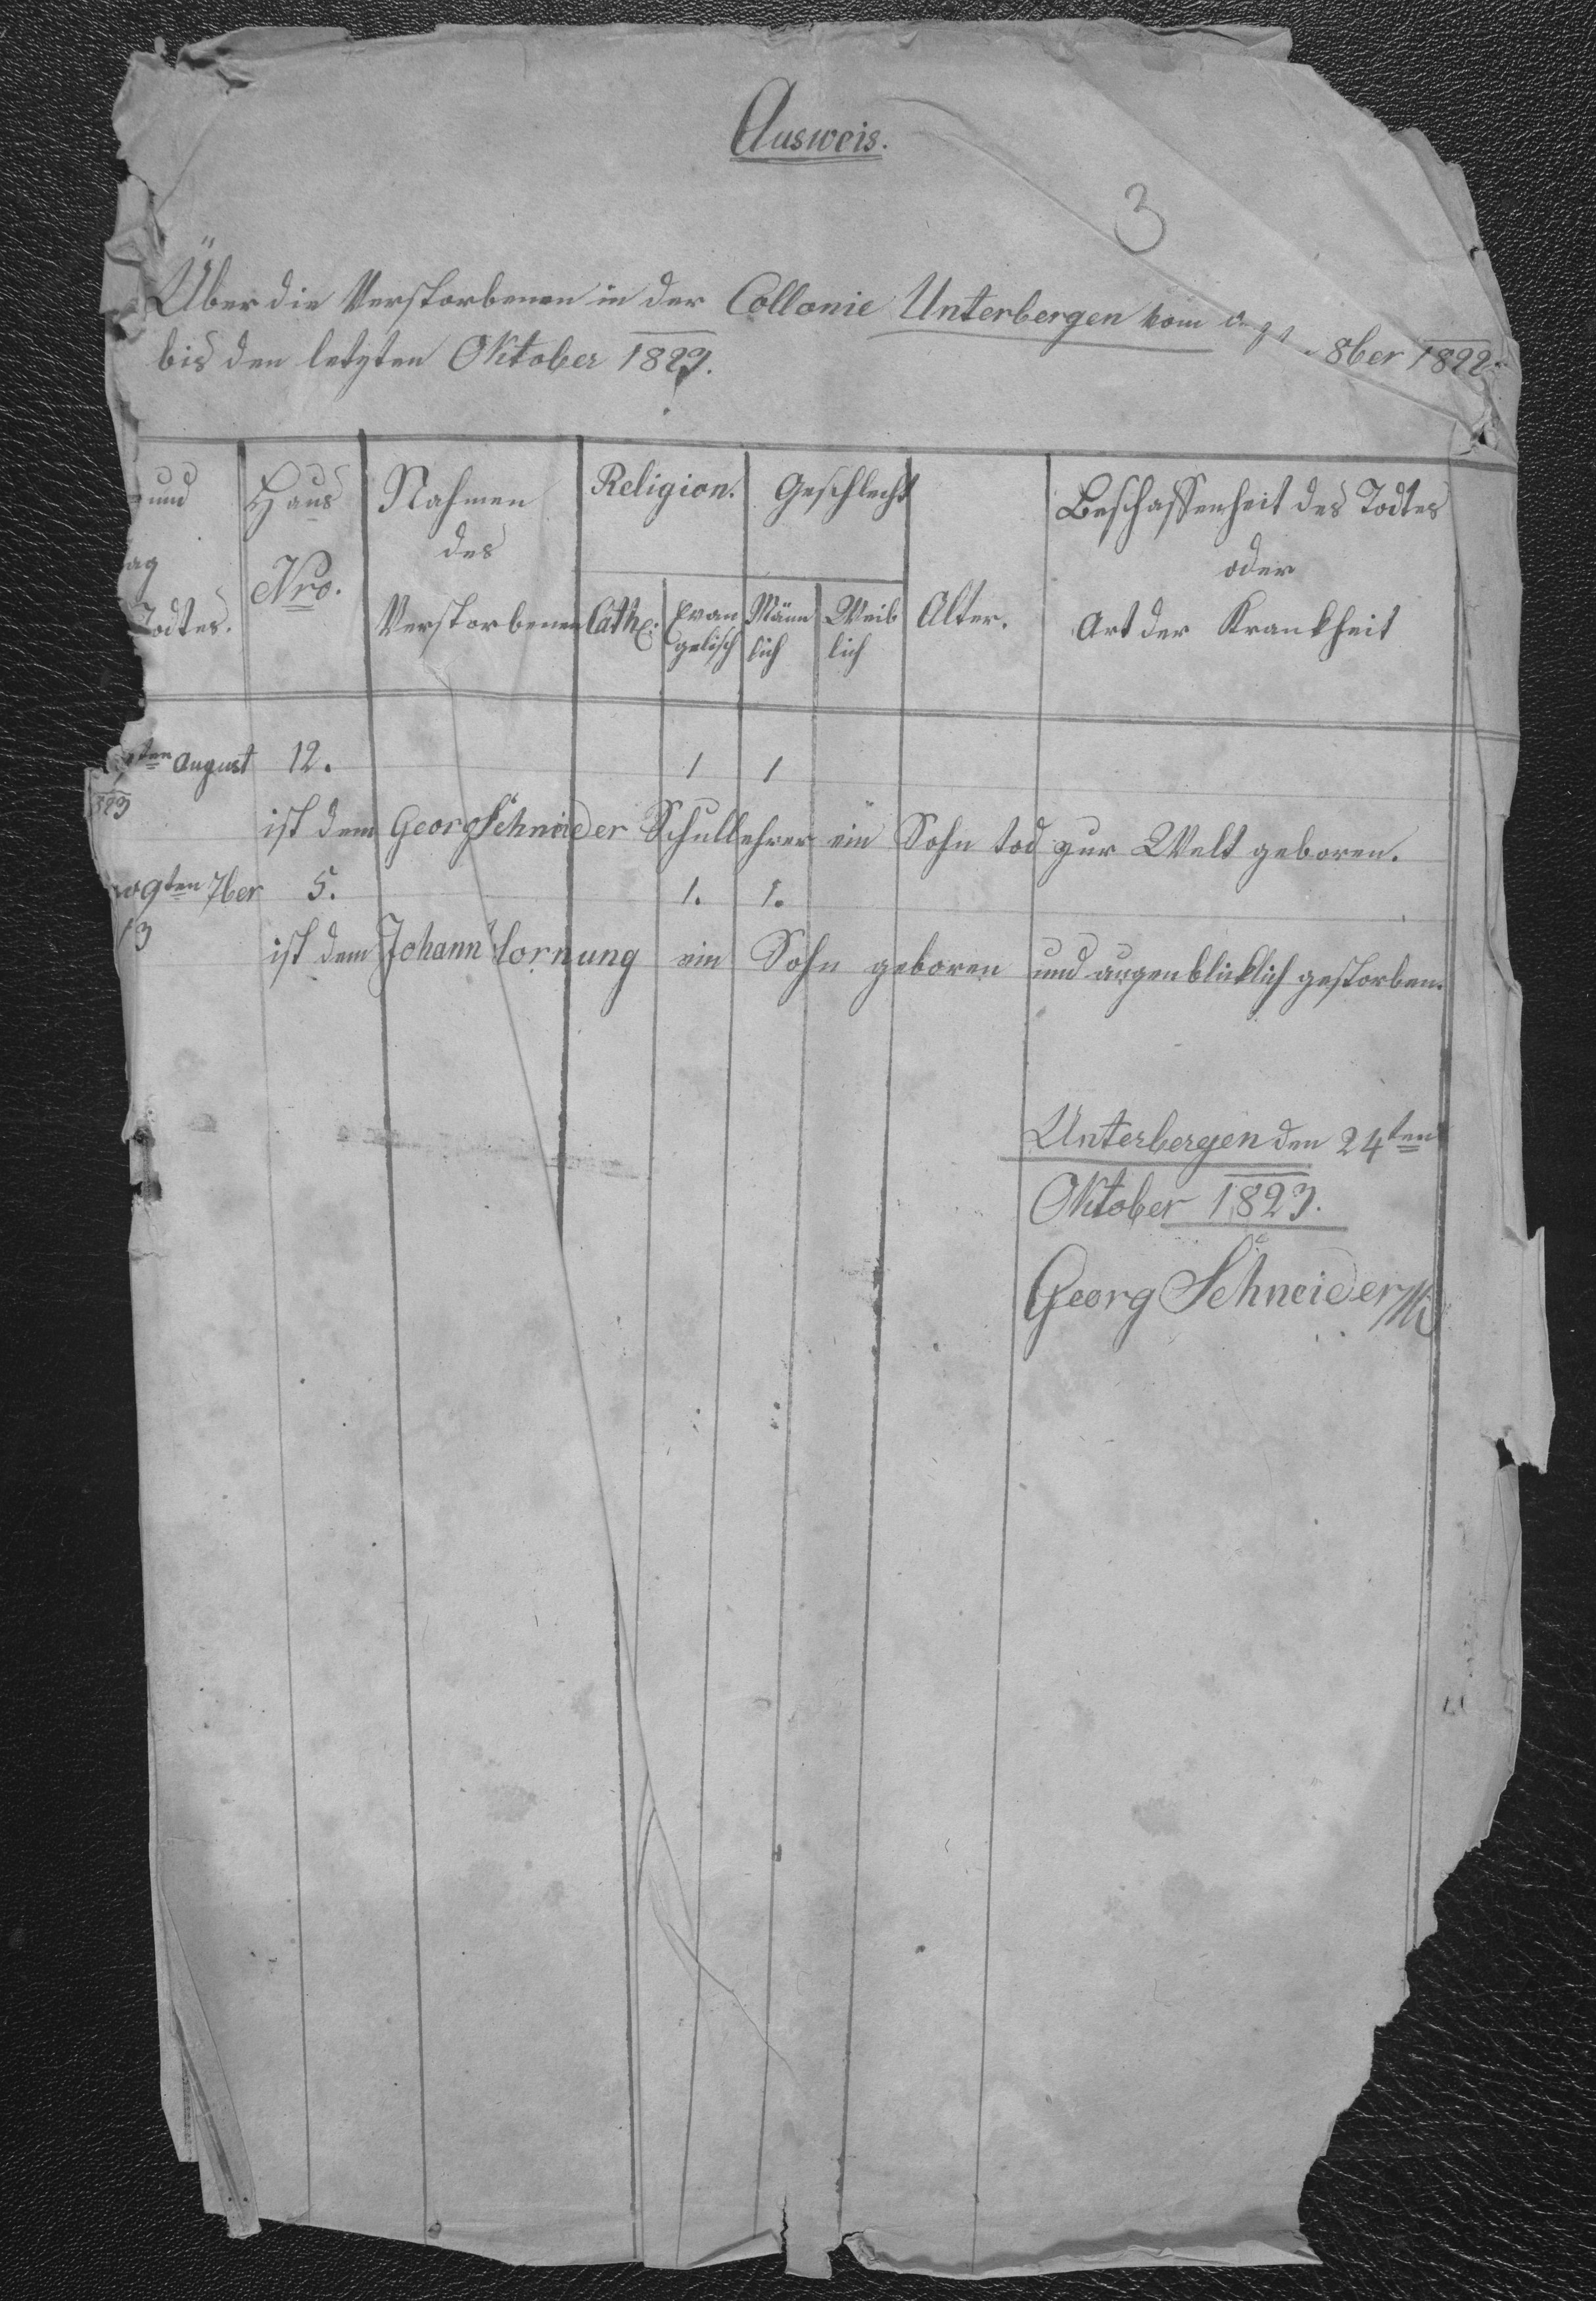 Ausweis.
3
Über die Verstorbenen in der Collonie Unterbergen vom 8ber 1822.
bis den letzten Oktober 1823.
und Haus Nahmen Religion. Geschlecht Beschaffenheit des Todtes
des oder
ag Nro.
Todtes. Verstorbenen Cath: Evan Männ Weib Alter. Art der Krankheit
gelisch lich lich
ten August 12. 1 1
823
ist dem Georg Schneider Schullehrer ein Sohn tod zur Welt geboren.
9ten 7ber 5. 1. 1.
3
ist dem Johann Hornung ein Sohn geboren und augenblicklich gestorben.
Unterbergen den 24ten
Oktober 1823.
Georg Schneider